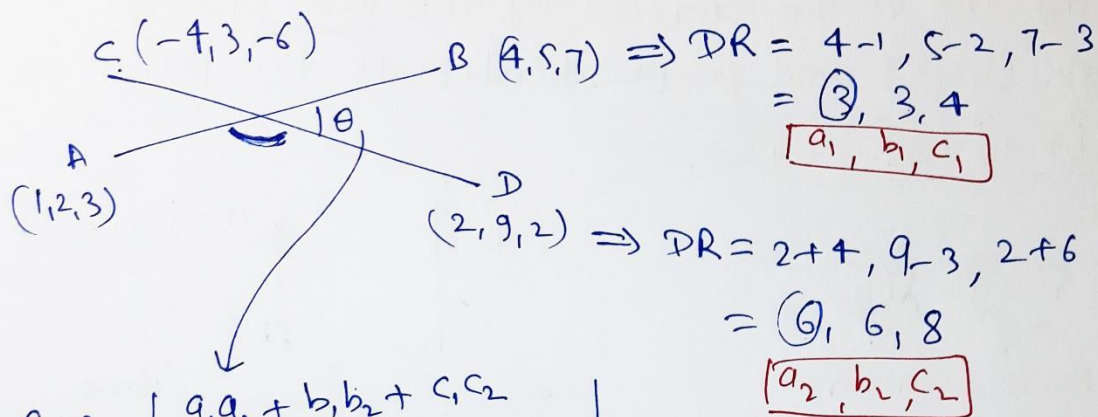 C (-4,3,-6)
B (4,5,7) ⇒ DR = 4-1, 5-2, 7-3
= 3, 3, 4
a₁, b₁, c₁
θ
A
(1,2,3)
D
(2,9,2) ⇒ DR = 2+4, 9-3, 2+6
= 6, 6, 8
a₂, b₂, c₂
| a₁a₂ + b₁b₂ + c₁c₂ |